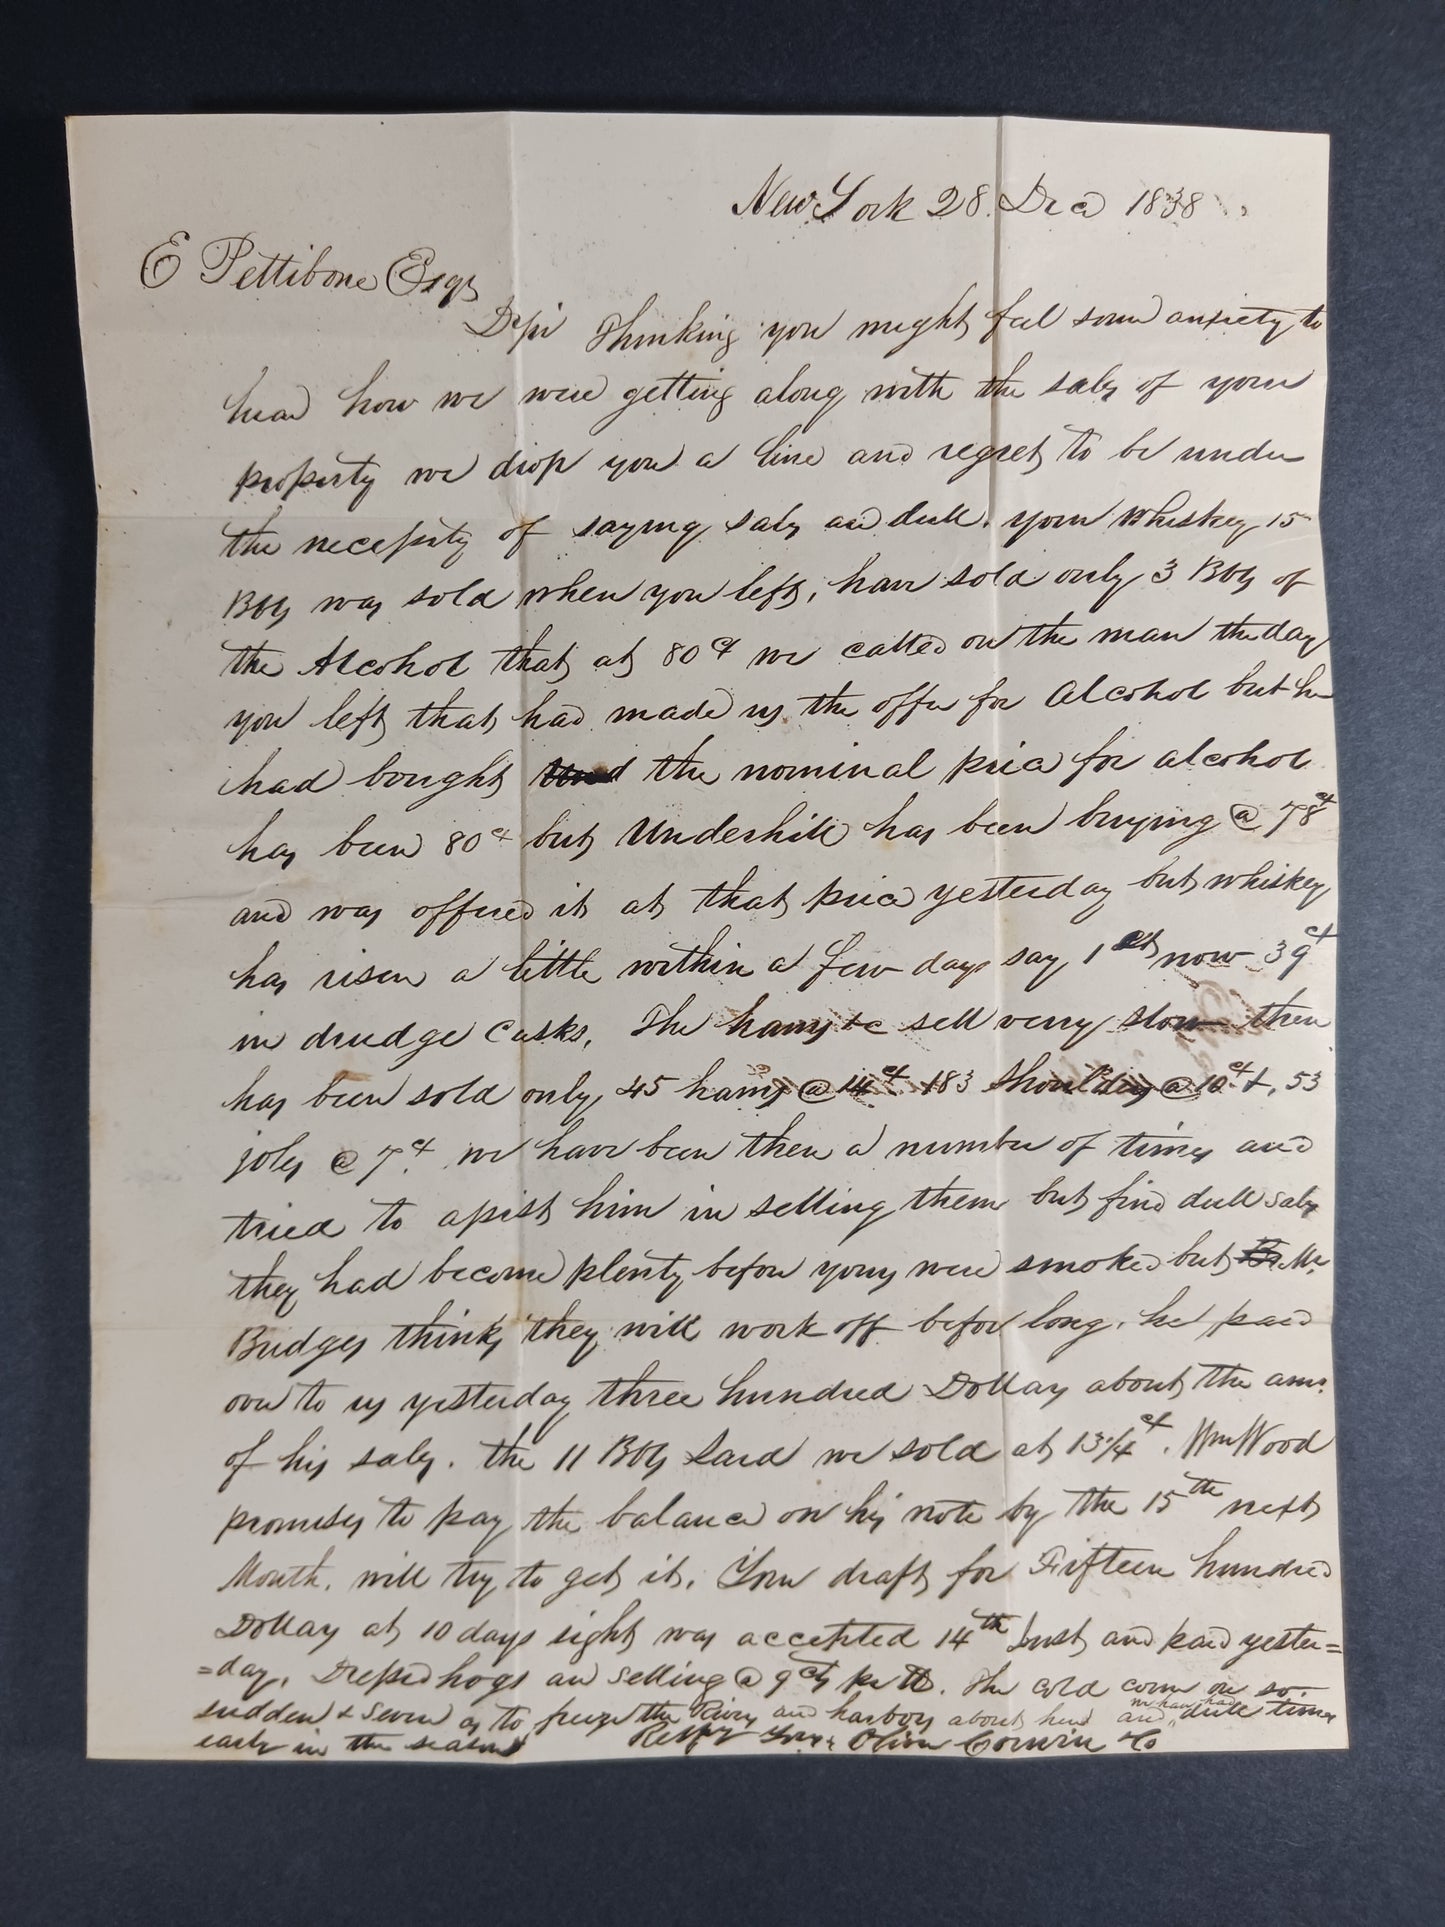 New York 28. Dec 1838
E Pettibone Esqr
D Sir Thinking you might feel some anxiety to
hear how we were getting along with the sales of your
property we drop you a line and regret to be under
the necessity of saying sales are dull. your Whiskey 15
Bbls was sold when you left, have sold only 3 Bbls of
the Alcohol that at 80 ct we called on the man the day
you left that had made us the offer for Alcohol but he
had bought the nominal price for alcohol
has been 80 ct but Underhill has been buying @ 78 ct
and was offered it at that price yesterday but whiskey
has risen a little within a few days say 1 ct now 39 ct
in drudge Casks. The hams &c sell very slow there
has been sold only 45 hams @ 14 ct 183 Shoulders @ 10 ct &. 53
joles @ 7 ct. we have been there a number of times and
tried to assist him in selling them but find dull sales
they had become plenty before yours were smoked but Mr.
Bridges thinks they will work off before long. he paid
over to us yesterday three hundred Dollars about the amt.
of his sales. the 11 Bbls Lard we sold at 13 1/4 ct. Wm Wood
promises to pay the balance on his note by the 15th next
Month. will try to get it. Your draft for Fifteen hundred
Dollars at 10 days sight was accepted 14th Inst and paid yester=
=day. Dressed hogs are selling @ 9 cts per lb. The cold come on so
sudden & severe as to freeze the Rivers and harbors about here and we have had dull times
early in the season Respy Yours Oliver Corwin & Co